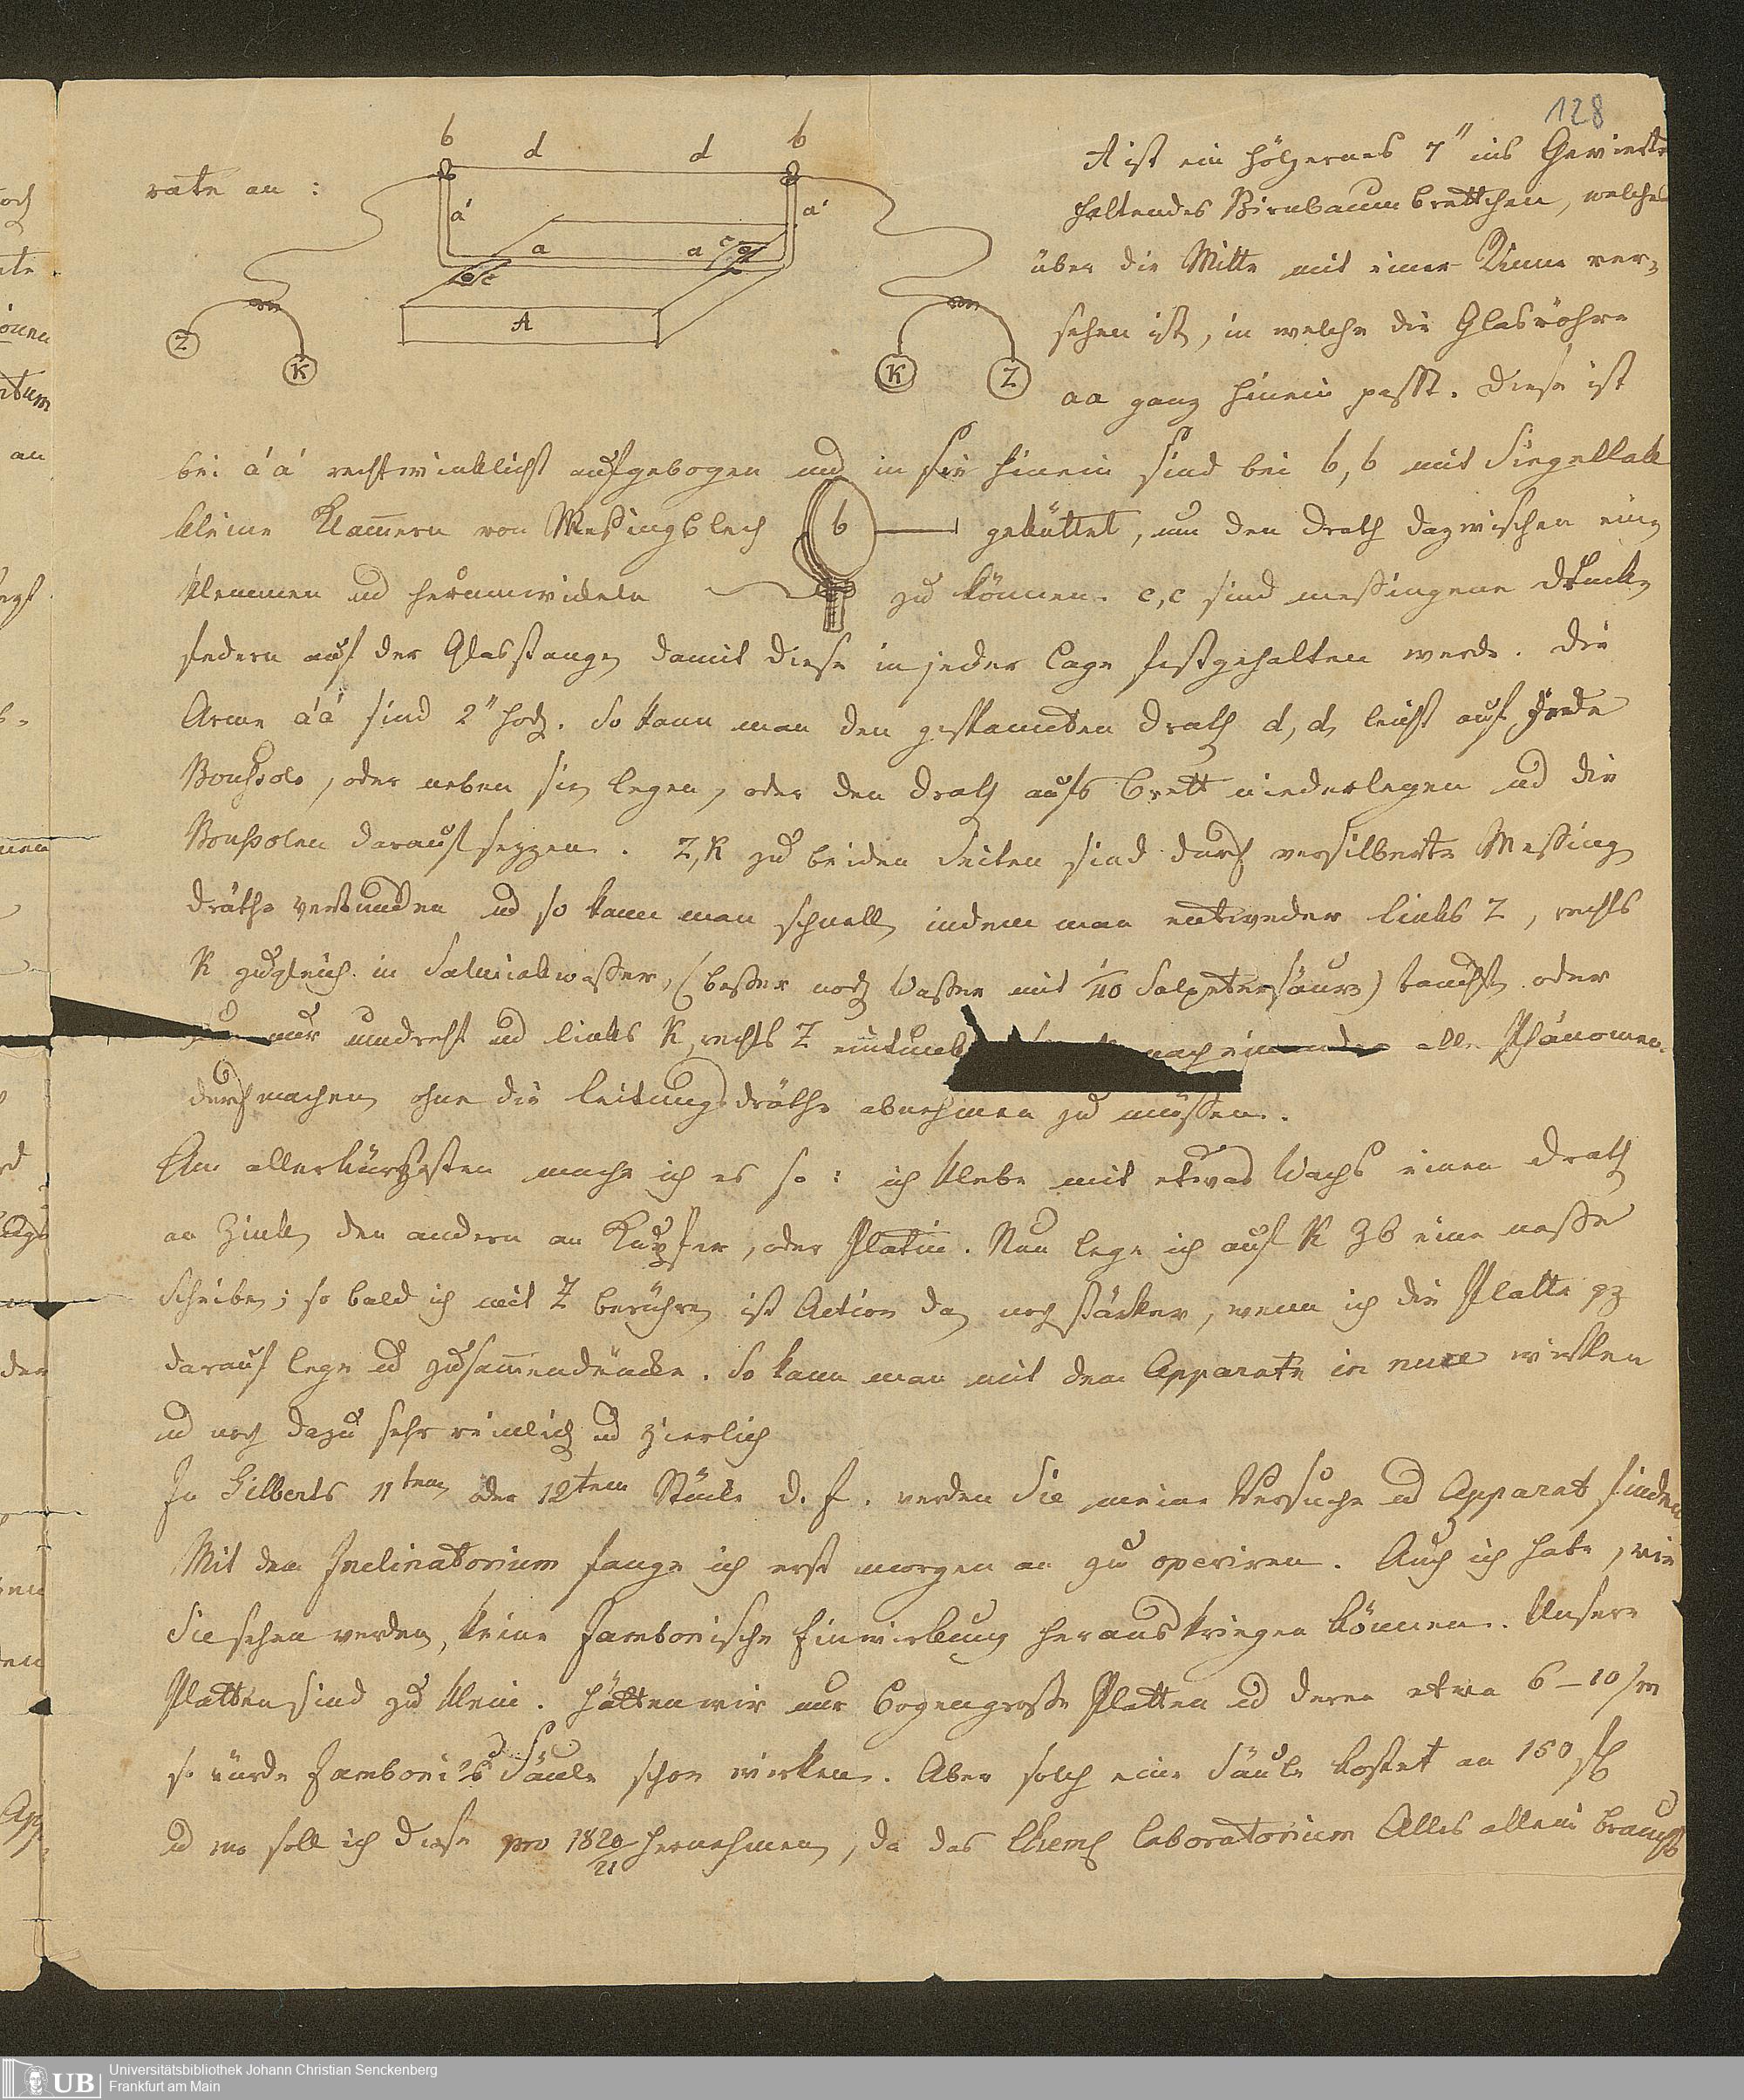 128
b d d b
rate an :
a' a'
a a c
c
A
Z K K Z
A ist ein hölzernes 7" ins Gevierte
haltendes Birnbaumbrettchen, welches
über die Mitte mit einer Rinne ver-
sehen ist, in welche die Glasröhre
aa ganz hinein passt. Diese ist
bei a'a' rechtwinklicht aufgebogen und in sie hinein sind bei b, b mit Siegellak
kleine Klam̄ern von Meßingblech b geküttet, um den Drath dazwischen ein-
klemmen und herumwickeln zu können. c, c sind meßingene Druck-
federn auf der Glasstange, damit diese in jeder Lage festgehalten werde. Die
Arme a'a' sind 2" hoch. So kann man den gespannten Drath d, d, leicht auf jede
Boußole, oder neben sie, legen, oder den Drath aufs Brett niederlegen und die
Boußolen darauf sezzen. Z, K zu beiden Seiten sind durch versilberte Meßing
dräthe verbunden und so kann man schnell, indem man entweder links Z, rechts
K zugleich in Salmiakwaßer, (beßer noch Waßer mit 1/40 Salpetersäure) taucht, oder
nur umdreht und links K, rechts Z eintunk nach einander alle Phänomen.
durchmachen, ohne die Leitungsdräthe abnehmen zu müßen.
Am allerkürzesten mache ich es so : ich klebe mit etwas Wachs einen Drath
an Zink, den andern an Kupfer, oder Platin. Nun lege ich auf K zb eine naße
Scheibe; so bald ich mit Z berühre, ist Action da, noch stärker, wenn ich die Platte gz
darauf lege und zusam̄endrücke. So kann man mit dem Apparate in nuce wirken
und noch dazu sehr reinlich und zierlich
In Gilberts 11ten oder 12tem Stücke d. J. werden Sie meine Versuche und Apparat finden
Mit dem Inclinatorium fange ich erst morgen an zu operiren. Auch ich habe, wie
Sie sehen werden, keine Zambonische Einwirkung herauskriegen können. Unsere
Platten sind zu klein. Hätten wir nur bogengroße Platten und deren etwa 6 – 10/m
so würde Zamboni's Säule schon wirken. Aber solch eine Säule kostet an 150 fl
und wo soll ich diese pro 1820/21 hernehmen, da das Chem. Laboratorium Alles allein braucht
UB Universitätsbibliothek Johann Christian Senckenberg
Frankfurt am Main